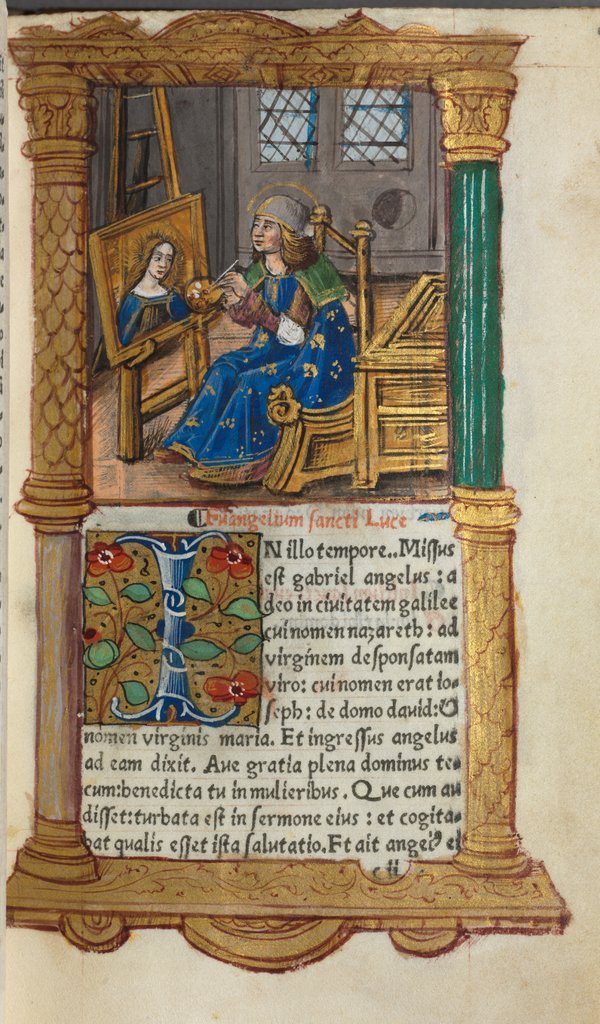 Euangelium sancti Luce
IN illo tempore.. Missus
est gabriel angelus : a
deo in ciuitatem galilee
cui nomen nazareth : ad
virginem desponsatam
viro: cui nomen erat io-
seph: de domo dauid: &
nomen virginis maria. Et ingressus angelus
ad eam dixit. Aue gratia plena dominus te-
cum: benedicta tu in mulieribus. Que cum au
disset: turbata est in sermone eius : et cogita-
bat qualis esset ista salutatio. Et ait angelꝰ ei
c ii